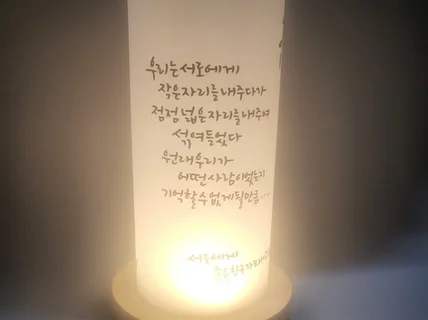 우리는 서로에게
작은 자리를 내주다가
점점 넓은 자리를 내주며
섞여들었다
원래 우리가
어떤 사람이었는지
기억할 수 없게 될 만큼...
서로에게
좋은